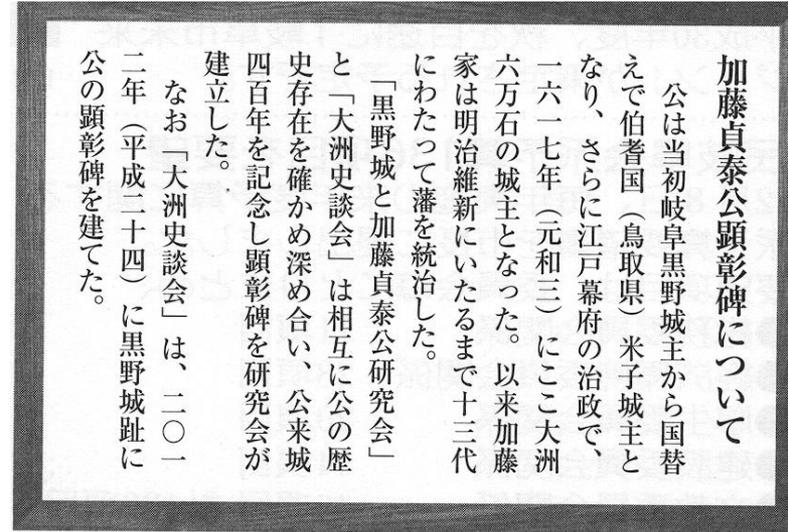 加藤貞泰公顕彰碑について
公は当初岐阜黒野城主から国替
えで伯耆国（鳥取県）米子城主と
なり、さらに江戸幕府の治政で、
一六一七年（元和三）にここ大洲
六万石の城主となった。以来加藤
家は明治維新にいたるまで十三代
にわたって藩を統治した。
「黒野城と加藤貞泰公研究会」
と「大洲史談会」は相互に公の歴
史存在を確かめ深め合い、公来城
四百年を記念し顕彰碑を研究会が
建立した。
なお「大洲史談会」は、二〇一
二年（平成二十四）に黒野城趾に
公の顕彰碑を建てた。